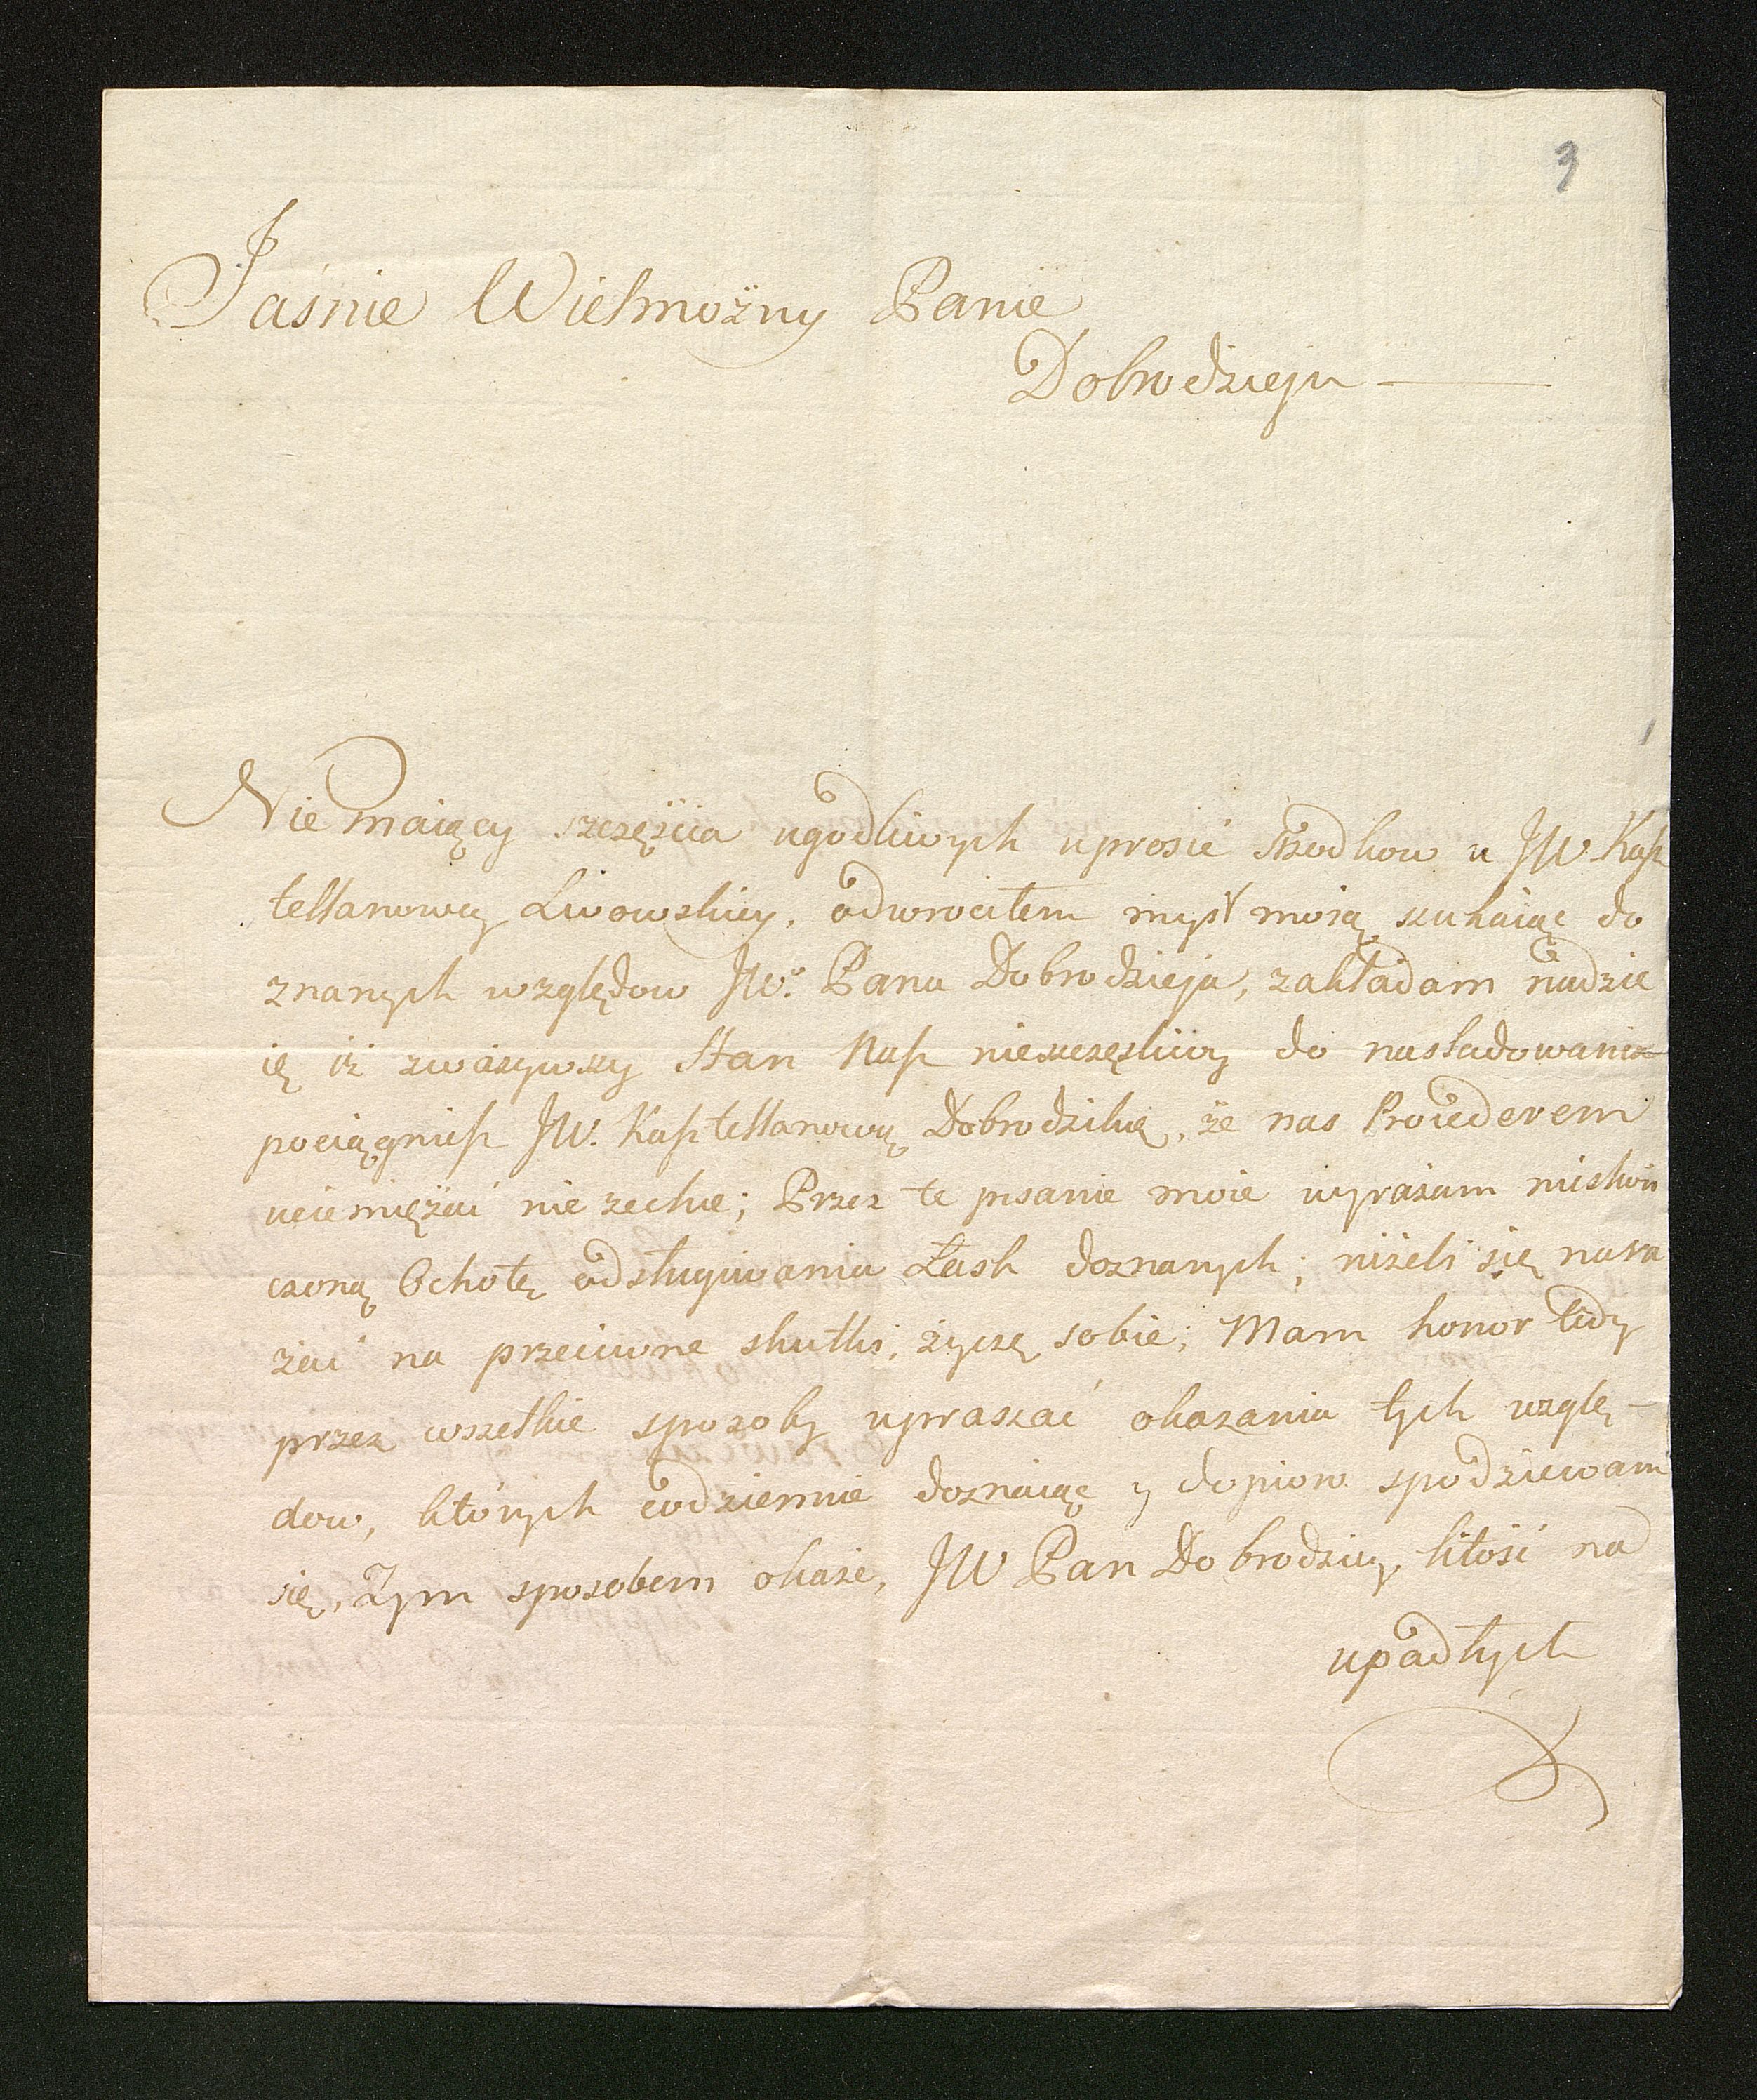 3
Jaśnie Wielmożny Panie
Dobrodzieju
Nie maiący szczęścia ugodliwych uprosić szrodkow u JW. Kasz
tellanowey Lwowskiey, odwrociłem myśl moią szukaiąc do
znanych względow JW. Pana Dobrodzieja, zakładam nadzie
ię iż zważywszy Stan Nasz nieszczęśliwy do nasladowania
pociągniesz JW. Kasztellanowę Dobrodzikę, że nas Procederem
uciemiężać nie zechce; Przez te pisanie moie wyrażam nieskoń
czoną Ochotę odsługiwania Łask doznanych; niżeli się nara
żać na przeciwne skutki, życzę sobie; Mam honor tedy
przez wszelkie sposoby upraszać okazania tych wzglę-
dow, których codziennie doznaiąc y dopiero spodziewam
się, Tym sposobem okaże, JW Pan Dobrodziey, litość nad
upadłych